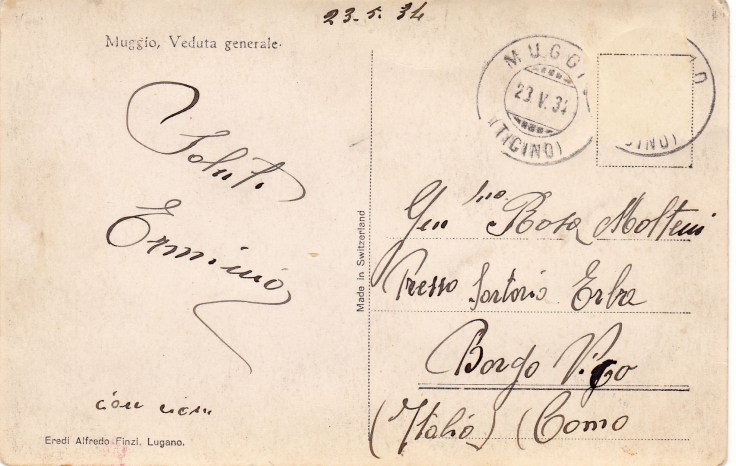 23.5.34
Muggio, Veduta generale.
MUGGIO
23.V.34
(TICINO)
CINO)
Saluti
Erminio
ciau ciau
Eredi Alfredo Finzi, Lugano.
Made in Switzerland
Gen<sup>ma</sup> Rosa Molteni
Presso Sartorio Erba
Borgo Vico
(Italia) (Como